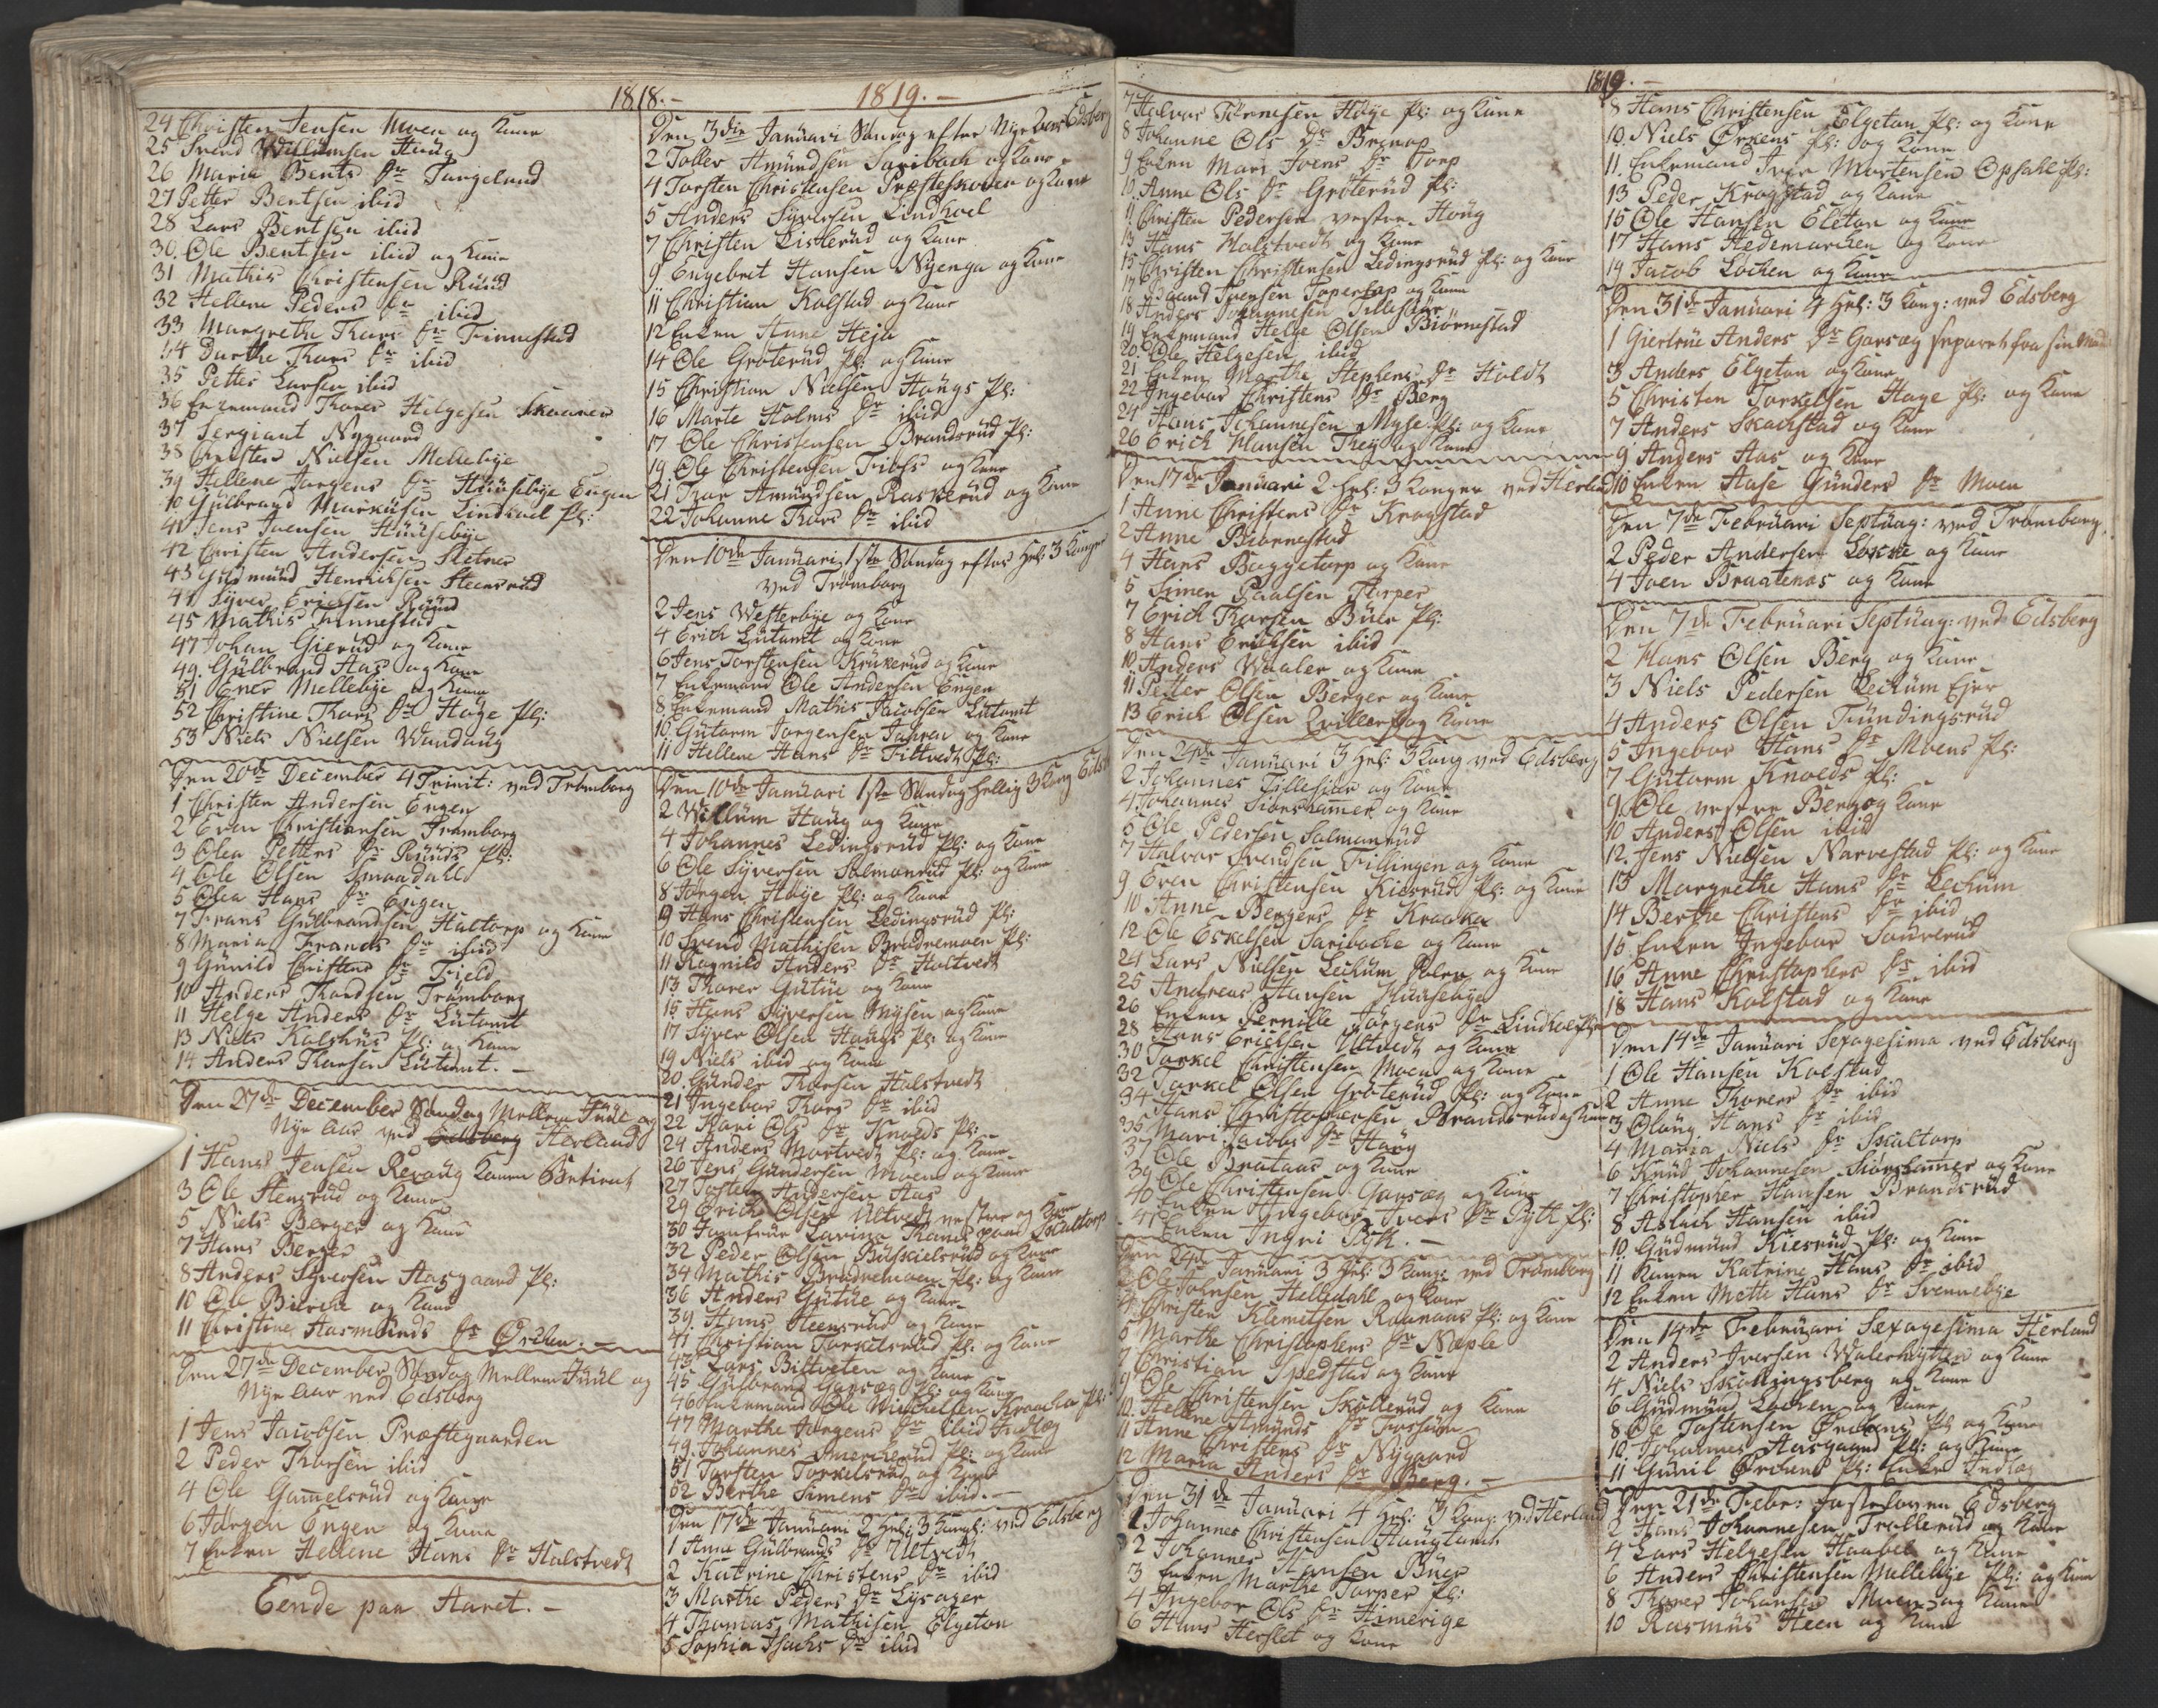 1818.-
24 Christen Jensen Moen og Kone
25 Svend Willumsen Houg
26 Maria Bents Dr Tangelund
27 Petter Bentsen ibid
28 Lars Bentsen ibid
30. Ole Bentsen ibid og Kone
31 Mathis Christensen Ruud
32 Hellene Peders Dr ibid
33 Margrethe Thors Dr Finnestad
34 Dorthe Thors Dr ibid
35 Petter Larsen ibid
36 Enkemand Thorer Helgesen
37 Sergiant Nygaard
38 Christen Nielsen Mellebye
39 Hellene Jørgens Dr Huusebye Engen
40 Gulbrand Markusen Lindhoel Pl:
41 Jens Iversen Huusebye
42 Christen Andersen Sletner
43 Gudmund Henriksen Steensrud
44 Syver Erichsen Ruud
45 Mathis Finnestad
47 Johan Gierud og Kone
49. Gulbrand Aas og Kone
51 Mellebye og Kone
52 Christine Thors Dr Høye Pl:
53 Niels Nielsen
Den 20de December 4 Trinit: ved Trømborg
1 Christen Andersen Engen
2 Even Christiansen Trømborg
3 Olea Petters Dr Ruuds Pl:
4 Ole Olsen Smaadahl
5 Olea Hans Dr Engen
7 Frans Gulbrandsen Haltorp og Kone
8 Maria Frands Dr ibid
9 Gunild Christens Dr Field
10 Anders Thordsen Trømborg
11 Helge Anders Dr Lutomt
13 Niels Kolshus Pl: og Kone
14 Anders Thorsen Lutomt. -
Den 27de December Søndag Mellem Juul og
Nye Aar ved Edsberg Herland
1 Hans Jensen Revoug Konen
3 Ole Stensrud og Kone
5 Niels Berger og Kone
7 Hans Berger
8 Anders Syversen Aasgaard Pl:
10 Ole og Kone
11 Christine Aasmunds Dr Ørchen. -
Den 27de December Søndag Mellem Juul og
Nye Aar ved Edsberg
1 Jens Jacobsen Præstegaarden
2 Peder Thorsen ibid
4 Ole Gamelsrud og Kone
6 Jørgen Engen og Kone
7 Enken Hellene Hans Dr Halstvedt
Eende paa Aaret. -
1819. -
Den 3die Januari Søndag efter Nye Aar Edsberg
2 Toller Amundsen Saribach og Kone
4 Torsten Christensen Præsteskoven og Kone
5 Anders Syversen Lindhoel
7 Christen Listerud og Kone
9 Engebret Hansen Nyenga og Kone
11 Christian Kolstad og Kone
12 Enken Anne Heja
14 Ole Groterud Pl: og Kone
15 Christian Nielsen Hougs Pl:
16 Marte Holms Dr ibid
17 Ole Christensen Brandsrud Pl:
19 Ole Christensen og Kone
21 Thor Amundsen Raskerud og Kone
22 Johanne Thors Dr ibid
Den 10de Januari 1ste Søndag efter Hel: 3 Konger
ved Trømborg
2 Jens Westerbye og Kone
4 Erich Lutomt og Kone
6 Jens Torstensen Krukerud og Kone
7 Enkemand Ole Andersen Engen
8 Enkemand Mathis Jacobsen Lutomt
10. Gutorm Jørgensen Jahren og Kone
11 Hellene Hans Dr Filtvedt Pl:
Den 10de Januari 1ste Søndag hellig 3 Kong Edsb
2 Willum Houg og Kone
4 Johannes Ledingsrud Pl: og Kone
6 Ole Syversen Salmonrud Pl: og Kone
8 Jørgen Høye Pl: og Kone
9 Hans Christensen Ledingsrud Pl:
10 Svend Mathisen Brødremoen Pl:
11 Ragnild Anders Dr Haltvedt
13 Thorer Gutue og Kone
15 Hans Syversen Mysen og Kone
17 Syver Olsen Hougs Pl: og Kone
19 Niels ibid og Kone
20. Gunder Thorsen Halstvedt
21 Ingebor Thors Dr ibid
22 Kari Ols Dr Knolds Pl:
24 Anders Mortvedt Pl: og Kone
26 Jens Gundersen Moen og Kone
27 Tosten Andersen Aas
29 Erich Olsen Ultvedt vestre og Kone
30 Jomfrue Karina Kanes paae Skaltorp
32 Peder Olsen Buskielsrud og Kone
34 Mathis Brødremoen Pl: og Kone
36 Anders Gutue og Kone
39. Hans Steensrud og Kone
41 Christian Torkelsrud Pl: og Kone
43 Lars Bilteten og Kone
45 Gulbrand Garseg Pl: og Kone
46 Enkemand Ole Michelsen Kraaka Pl:
47 Marthe Jørgens Dr ibid Indlæg
49. Johannes Smerkerud Pl: og Kone
51 Torsten Torkelsrud og Kone
52 Berthe Simens Dr ibid. -
Den 17de Januari 2 Hel: 3 Kong: ved Edsberg
1 Anne Gulbrands Dr Ultvedt
2 Katrine Christens Dr ibid
3 Marthe Peders Dr Lysager
4 Thomas Mathisen Elgeton
5 Sophia Isachs Dr ibid
1819. -
7 Halvor Tærnesen Høye Pl: og Kone
8 Johanne Ols Dr
9 Enken Mari Joens Dr Torp
10. Anne Ols Dr Groterud Pl:
11 Christen Pedersen vestre Houg
13 Hans Halstvedt og Kone
15 Christen Christensen Ledingsrud Pl: og Kone
17 Iversen Toperop og Kone
18 Anders Johannesen Tillesiør
19 Enkemand Helge Olsen Biørnestad
20. Ole Helgesen ibid
21 Enken Marthe Stephens Dr Holdt
22 Ingebor Christens Dr Berg
24 Hans Johannesen Myse Pl: og Kone
26 Erich Hansen og Kone
Den 17de Januari 2 Hel: 3 Konger ved Herland
1 Anne Christens Dr Krogstad
2 Anne Biørnestad
4 Hans Buggetorp og Kone
5 Simen Paalsen Torper
7 Erich Thorsen Buer Pl:
8 Hans Erichsen ibid
10 Anders Waaler og Kone
11 Petter Olsen Berger og Kone
13 Erich Olsen og Kone
Den 24de Januari 3 Hel: 3 Kong ved Edsberg
2 Johannes Tillesiør og Kone
4 Johannes Siørshamer og Kone
5 Ole Pedersen Salmonrud
7 Halvor Svendsen Fillingen og Kone
9 Even Christensen Kiesrud Pl: og Kone
10 Anne Bergers Dr Kraaka
12 Ole Eskelsen Saribache og Kone
24 Lars Nielsen Lechum og Kone
25 Andreas Hansen Huusebye
26 Enken Pernille Jørgens Dr Lindhoel Pl:
28 Hans Erichsen Ultvedt og Kone
30 Torkel Christensen Moen og Kone
32 Torkel Olsen Groterud Pl: og Kone
34 Hans Christophersen Brandsrud og Kone
35 Mari Jacobs Dr Houg
37 Ole Brataas og Kone
39 Ole Christensen Garseg og Kone
40 Enken Ingebor Ivers Dr Pytt Pl:
41 Enken Ingri Pytt. -
Den 24de Januari 3 Hel: 3 Kong: ved Trømborg
2 Ole Johnsen Helledahl og Kone
4 Christen Klemetsen Raanaas Pl: og Kone
5 Marthe Christophers Dr Næple
7 Christian Spedstad og Kone
9 Ole Christensen Skollerud og Kone
10. Hellene Amunds Dr Fossum
11 Anne Christens Dr Nygaard
12 Maria Anders Dr Berg. -
Den 31de Januari 4 Hel: 3 Kong: ved Herland
1 Johannes Christensen Hougtomt
2 Johannes Hansen Buer
3 Enken Marthe Torper Pl:
4 Ingebor Ols Dr Himerige
6 Hans Herslet og Kone
8 Hans Christensen Elgeton Pl: og Kone
10. Niels Ørkens Pl: og Kone
11. Enkemand Iver Mortensen Opsahl Pl:
13 Peder Krogstad og Kone
15 Ole Hansen Elgeton og Kone
17 Hans Hedemarken og Kone
19 Jacob Lochen og Kone
Den 31de Januari 4 Hel: 3 Kong: ved Edsberg
1 Giertrue Anders Dr Garseg separet fra sin Mand
3 Anders Elgeton og Kone
5 Christen Torkelsen Høye Pl: og Kone
7 Anders Skachstad og Kone
9 Anders Aas og Kone
10 Enken Aase Gunders Dr Moen
Den 7de Februari Septuag: ved Trømborg
2 Peder Andersen Løkke og Kone
4 Joen Braatenes og Kone
Den 7de Februari Septuag: ved Edsberg
2 Hans Olsen Berg og Kone
3 Niels Pedersen Lechum Ejer
4 Anders Olsen Tundingsrud
5 Ingebor Hans Dr Moens Pl:
7 Gutorm Knolds Pl:
9. Ole vestre Berg og Kone
10 Anders Olsen ibid
12. Jens Nielsen Narvestad Pl: og Kone
13 Margrethe Hans Dr Lechum
14 Berthe Christens Dr ibid
15 Enken Ingebor
16 Anne Christophers Dr ibid
18 Hans Kolstad og Kone
Den 14de Januari Sexagesima ved Edsberg
1 Ole Hansen Kolstad
2 Anne Thorers Dr ibid
3 Oloug Hans Dr ibid
4 Maria Niels Dr Skaltorp
6 Knud Johannesen Siørshamer og Kone
7 Christopher Hansen Brandsrud
8 Aslach Hansen ibid
10 Gudmund Kiesrud Pl: og Kone
11 Konen Katrine Hans Dr ibid
12 Enken Mette Hans Dr Svennebye
Den 14de Februari Sexagesima Herland
2 Anders Iversen Walerhytten og Kone
4 Niels Skallingsberg og Kone
6 Gudmund Lochen og Kone
8 Ole Tostensen Ørchens Pl og Kone
10. Johannes Aasgaard Pl: og Kone
11 Gunil Ørchens Pl: Enke Indlæg
Den 21de Febr: Fastelaven Edsberg
2 Hans Johannesen Trollerud og Kone
4 Lars Helgesen og Kone
6 Anders Christensen Mellebye Pl: og Kone
8 Thorer Johansen Moen og Kone
10 Rasmus Steen og Kone